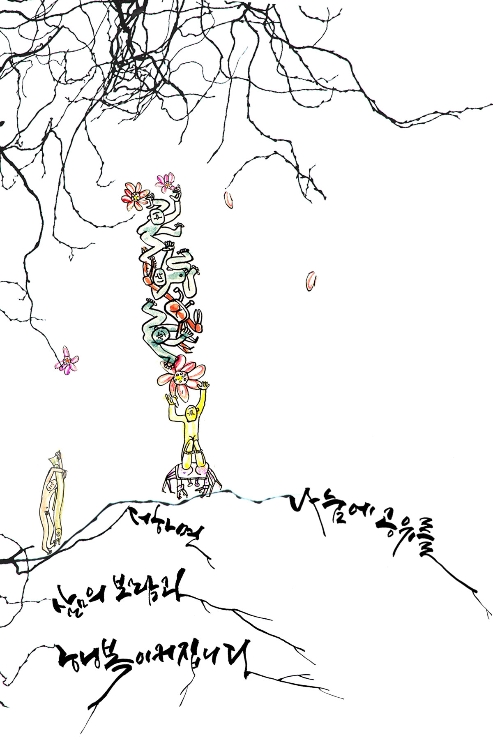 나눔에 공유를
더하면
삶의 보람과
행복이커집니다